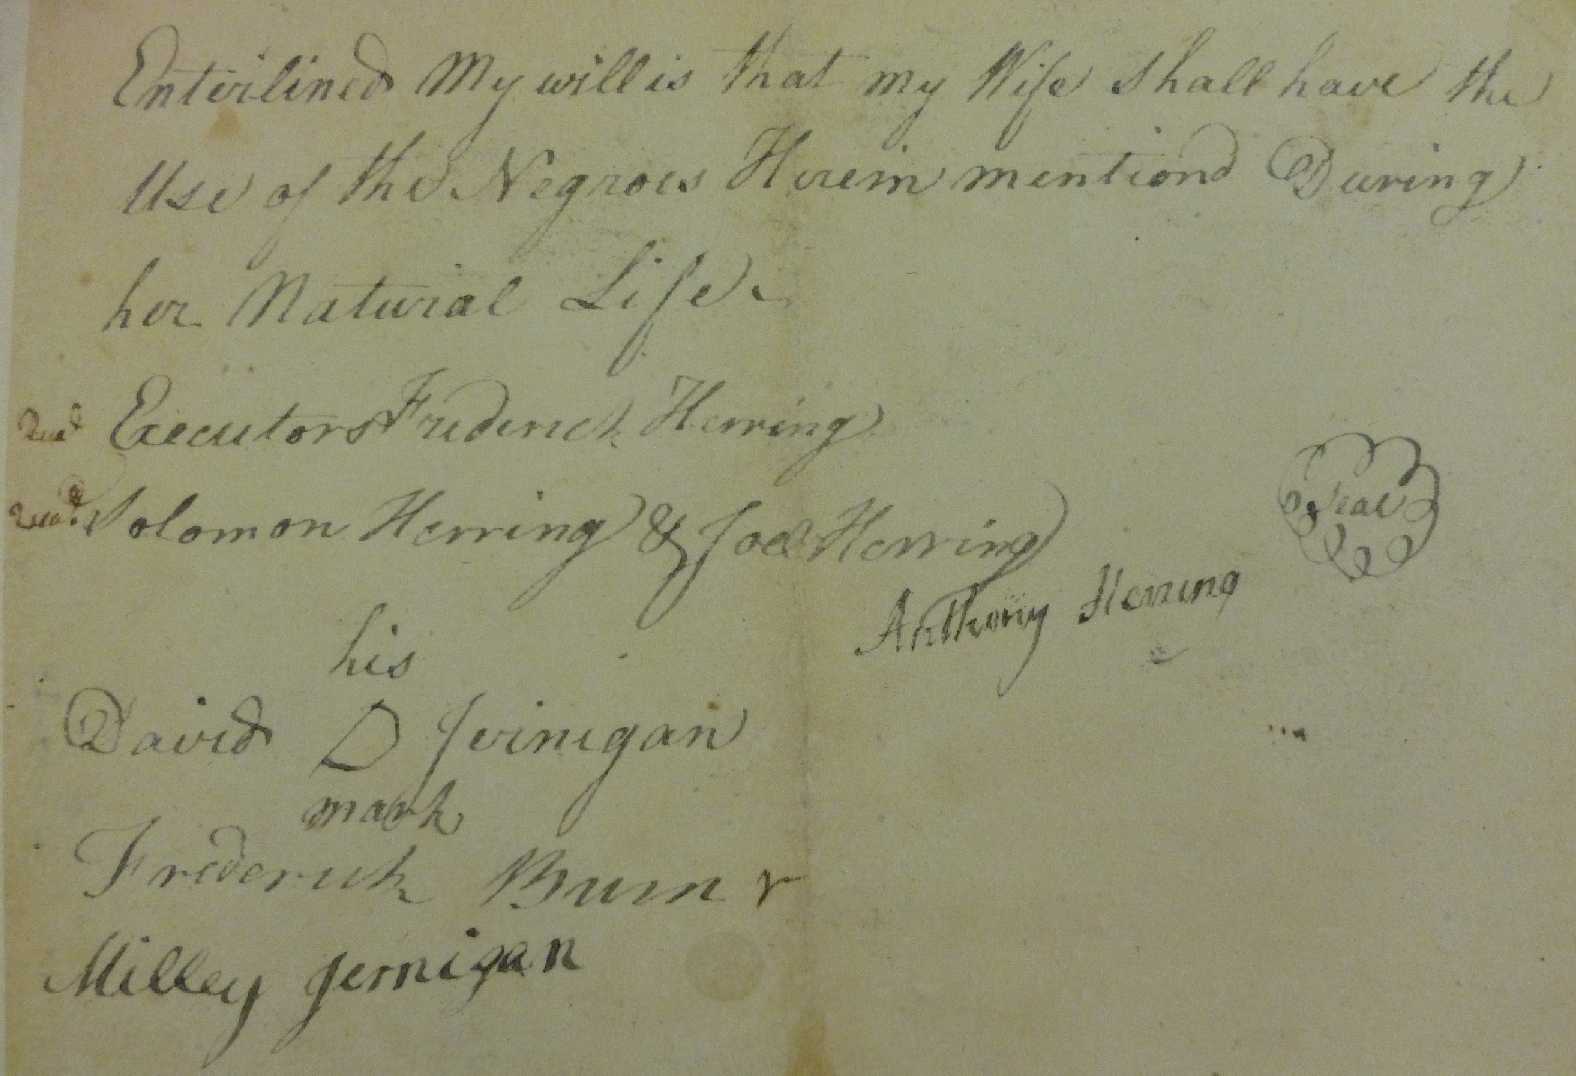 Enterlined My will is that my Wife shall have the
Use of the Negroes Herein mentiond During
her Natural Life.
Quad Executors Frederick Herring
Quad. Solomon Herring & Joel Herring
Seal
Anthony Herring
his
David D Jernigan
mark
Frederick Burn r
Milley Jernigan